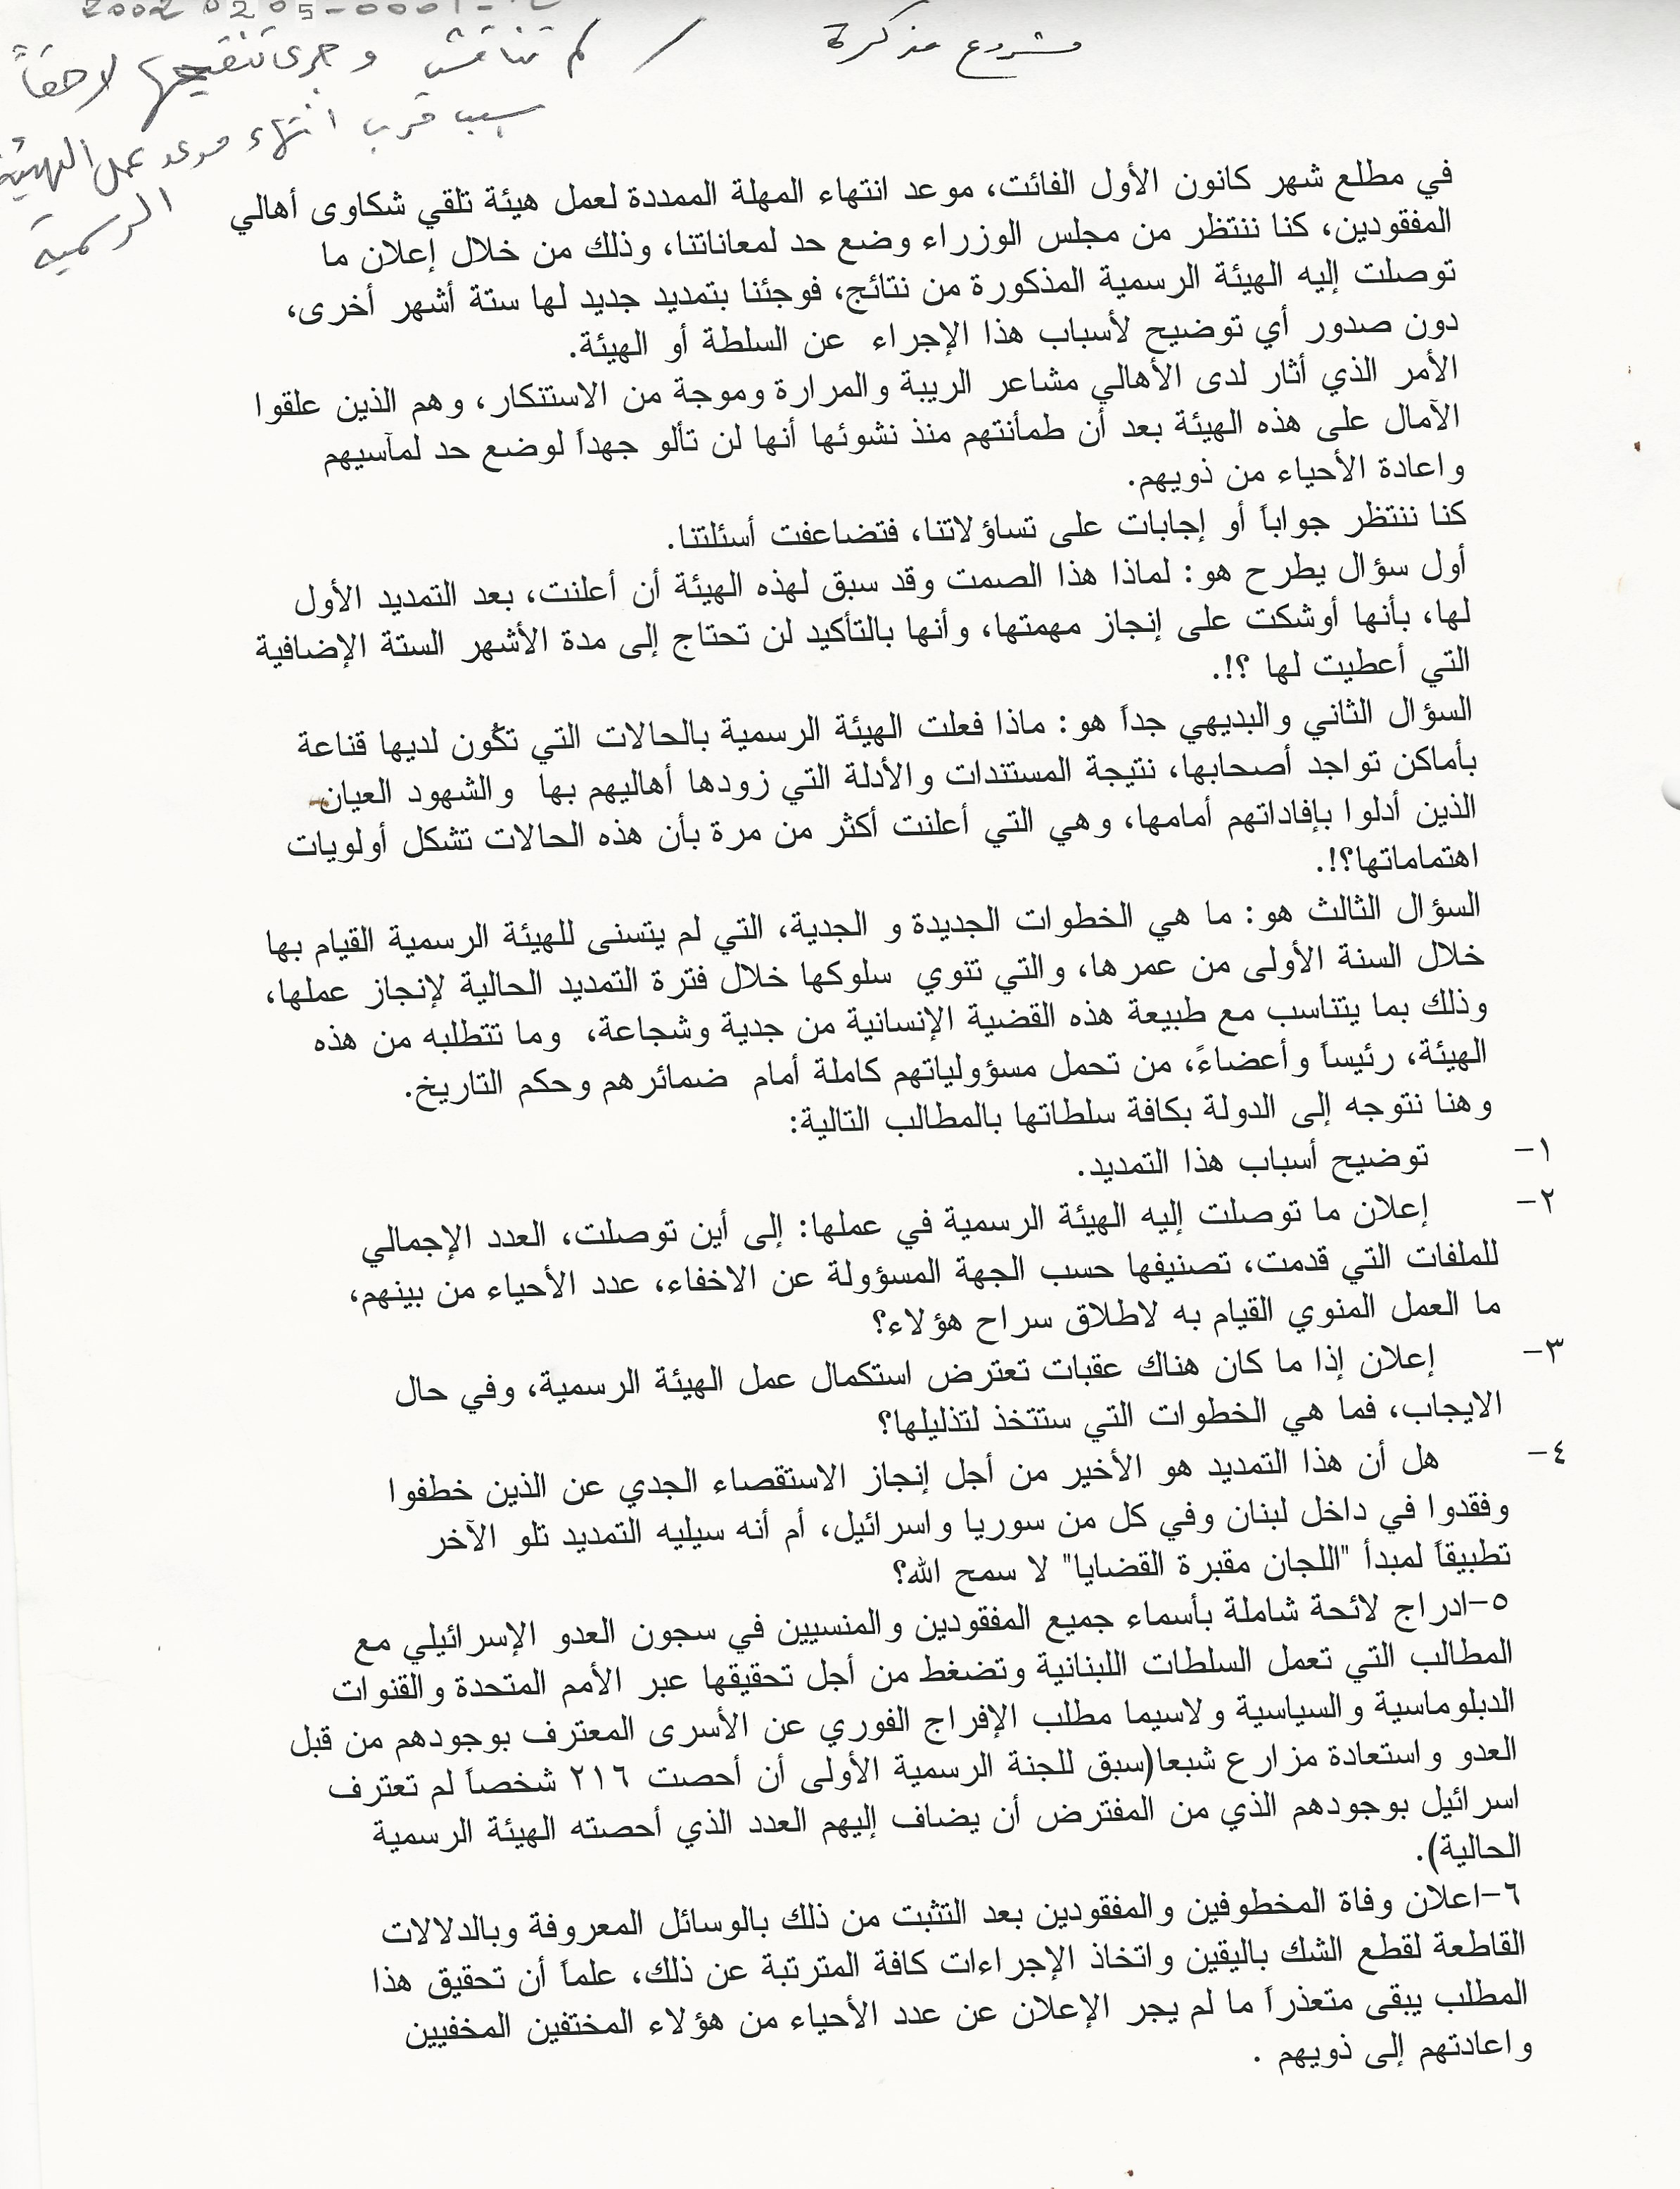 2002 02 05-0001-
مشروع مذكرة / لم تناقش و جرى تنقيحها لاحقاً
بسبب قرب انتهاء موعد عمل الهيئة
الرسمية
في مطلع شهر كانون الأول الفائت، موعد انتهاء المهلة الممددة لعمل هيئة تلقي شكاوى أهالي
المفقودين، كنا ننتظر من مجلس الوزراء وضع حد لمعاناتنا، وذلك من خلال إعلان ما
توصلت إليه الهيئة الرسمية المذكورة من نتائج، فوجئنا بتمديد جديد لها ستة أشهر أخرى،
دون صدور أي توضيح لأسباب هذا الإجراء عن السلطة أو الهيئة.
الأمر الذي أثار لدى الأهالي مشاعر الريبة والمرارة وموجة من الاستنكار، وهم الذين علقوا
الآمال على هذه الهيئة بعد أن طمأنتهم منذ نشوئها أنها لن تألو جهداً لوضع حد لمآسيهم
واعادة الأحياء من ذويهم.
كنا ننتظر جواباً أو إجابات على تساؤلاتنا، فتضاعفت أسئلتنا.
أول سؤال يطرح هو: لماذا هذا الصمت وقد سبق لهذه الهيئة أن أعلنت، بعد التمديد الأول
لها، بأنها أوشكت على إنجاز مهمتها، وأنها بالتأكيد لن تحتاج إلى مدة الأشهر الستة الإضافية
التي أعطيت لها ؟!.
السؤال الثاني والبديهي جداً هو: ماذا فعلت الهيئة الرسمية بالحالات التي تكُون لديها قناعة
بأماكن تواجد أصحابها، نتيجة المستندات والأدلة التي زودها أهاليهم بها والشهود العيان
الذين أدلوا بإفاداتهم أمامها، وهي التي أعلنت أكثر من مرة بأن هذه الحالات تشكل أولويات
اهتماماتها؟!.
السؤال الثالث هو: ما هي الخطوات الجديدة و الجدية، التي لم يتسنى للهيئة الرسمية القيام بها
خلال السنة الأولى من عمرها، والتي تنوي سلوكها خلال فترة التمديد الحالية لإنجاز عملها،
وذلك بما يتناسب مع طبيعة هذه القضية الإنسانية من جدية وشجاعة، وما تتطلبه من هذه
الهيئة، رئيساً وأعضاءً، من تحمل مسؤولياتهم كاملة أمام ضمائرهم وحكم التاريخ.
وهنا نتوجه إلى الدولة بكافة سلطاتها بالمطالب التالية:
١- توضيح أسباب هذا التمديد.
٢- إعلان ما توصلت إليه الهيئة الرسمية في عملها: إلى أين توصلت، العدد الإجمالي
للملفات التي قدمت، تصنيفها حسب الجهة المسؤولة عن الاخفاء، عدد الأحياء من بينهم،
ما العمل المنوي القيام به لاطلاق سراح هؤلاء؟
٣- إعلان إذا ما كان هناك عقبات تعترض استكمال عمل الهيئة الرسمية، وفي حال
الايجاب، فما هي الخطوات التي ستتخذ لتذليلها؟
٤- هل أن هذا التمديد هو الأخير من أجل إنجاز الاستقصاء الجدي عن الذين خطفوا
وفقدوا في داخل لبنان وفي كل من سوريا واسرائيل، أم أنه سيليه التمديد تلو الآخر
تطبيقاً لمبدأ "اللجان مقبرة القضايا" لا سمح الله؟
٥-ادراج لائحة شاملة بأسماء جميع المفقودين والمنسيين في سجون العدو الإسرائيلي مع
المطالب التي تعمل السلطات اللبنانية وتضغط من أجل تحقيقها عبر الأمم المتحدة والقنوات
الدبلوماسية والسياسية ولاسيما مطلب الإفراج الفوري عن الأسرى المعترف بوجودهم من قبل
العدو واستعادة مزارع شبعا(سبق للجنة الرسمية الأولى أن أحصت ٢١٦ شخصاً لم تعترف
اسرائيل بوجودهم الذي من المفترض أن يضاف إليهم العدد الذي أحصته الهيئة الرسمية
الحالية).
٦-اعلان وفاة المخطوفين والمفقودين بعد التثبت من ذلك بالوسائل المعروفة وبالدلالات
القاطعة لقطع الشك باليقين واتخاذ الإجراءات كافة المترتبة عن ذلك، علماً أن تحقيق هذا
المطلب يبقى متعذراً ما لم يجر الإعلان عن عدد الأحياء من هؤلاء المختفين المخفيين
واعادتهم إلى ذويهم .